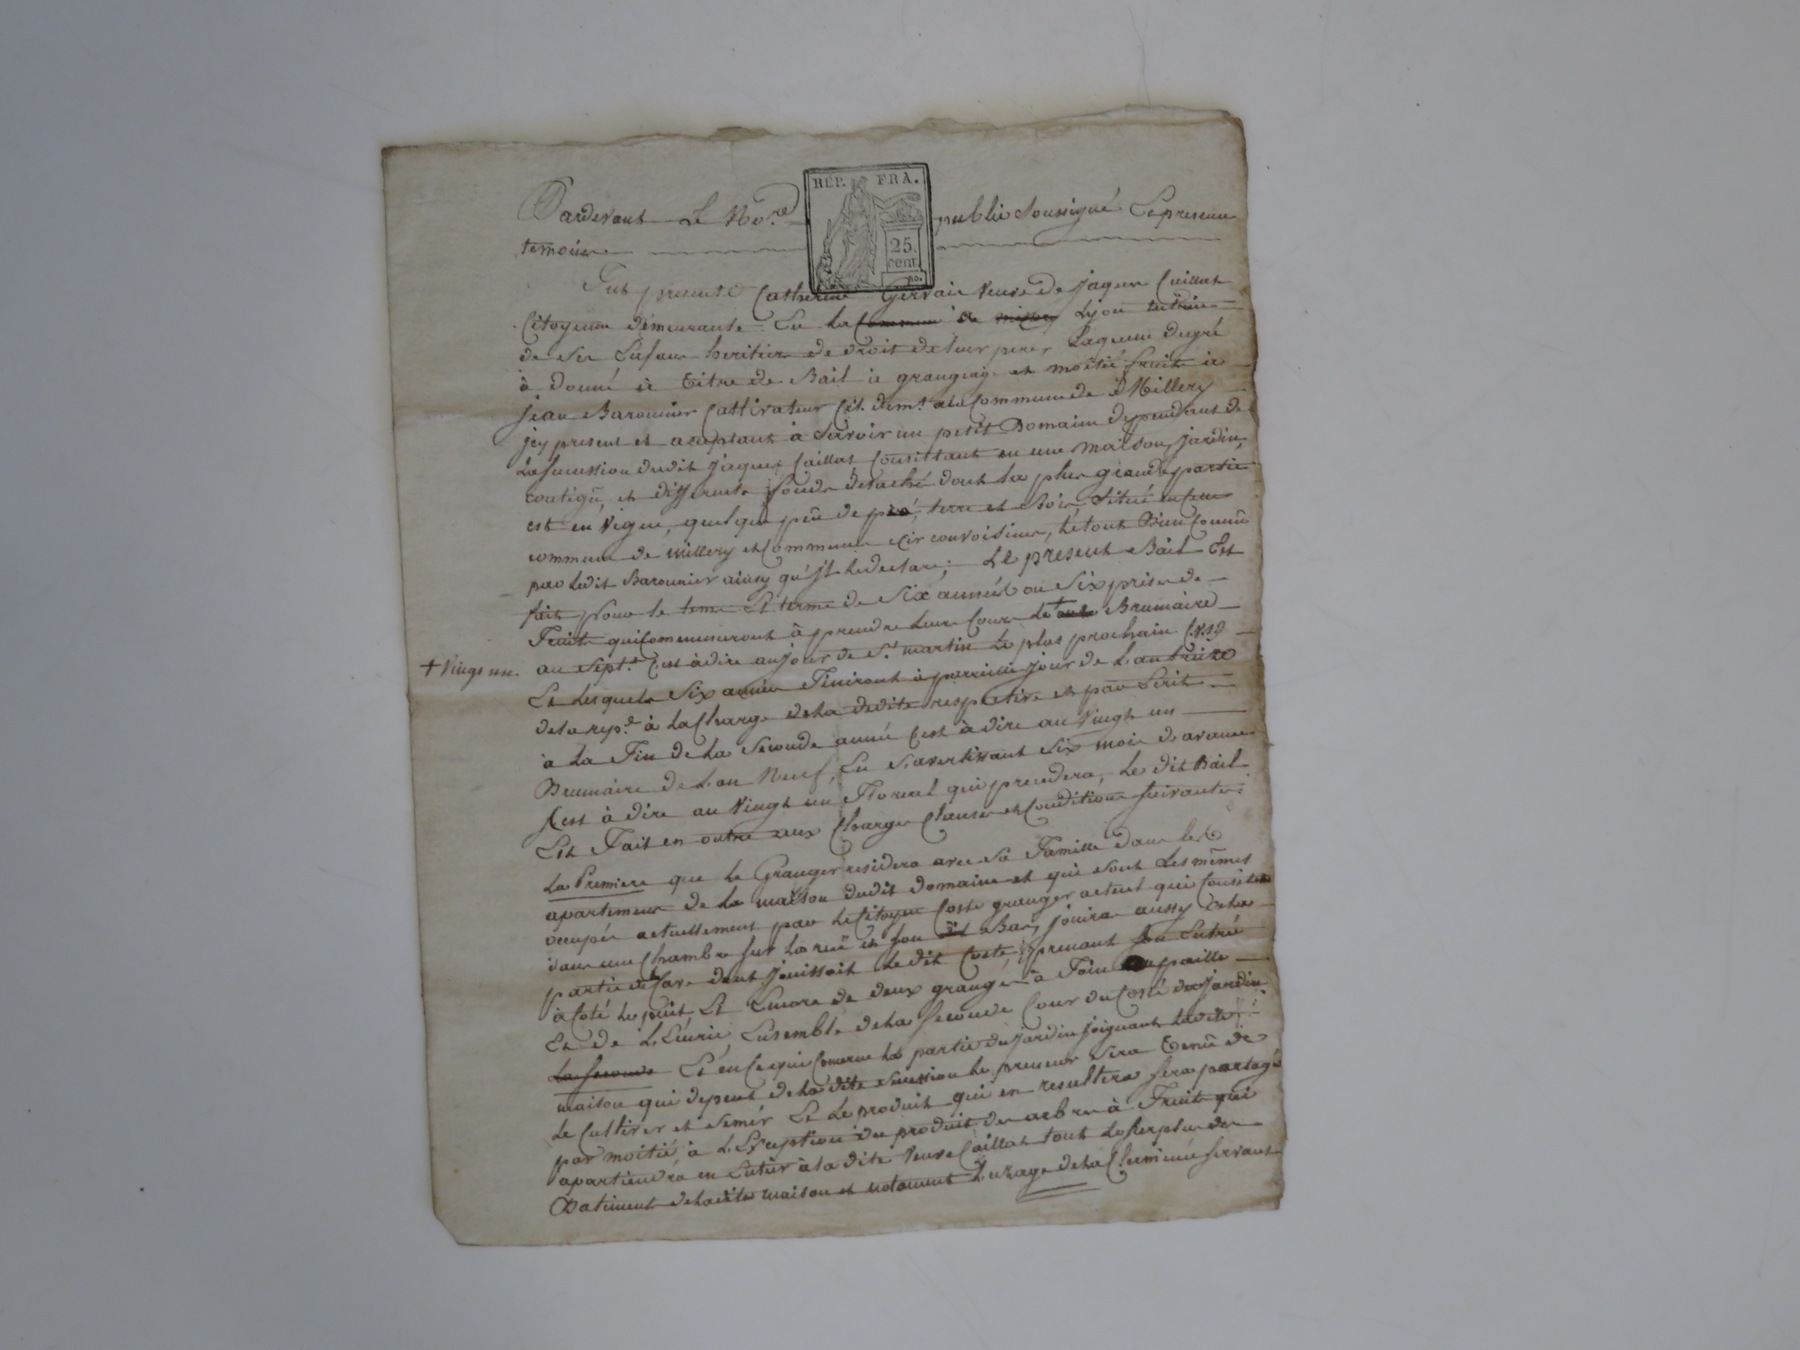 RÉP. FRA.
25
cent.
Pardevant Le No.re public Soussigné Et presence
temoins
Fut presente Catherine Gervais Veuve de jaques Caillat
Citoyenne demeurante En La Commune de Millery Lyon tutrice
de Ses Enfans heritiers de droit de leur pere, Laquelle degré
à donné à titre de Bail à grangeage et moitié fruits à
jean Barounier Cultivateur Cit. dem.t a la Commune de Millery
jcy present et aceptant à Savoir un petit Domaine dependant de
La Sucession dudit jaques Caillat Consistant en une maison, jardin,
contigu, et differents fonds detaché dont la plus grande partie
est en Vigne, quelque peu de pré, terre et Bois, Situé en
commune de Millery et Communes Circonvoisines, le tout Bien Connu
par Ledit Barounier ainsy qu'jl le declare; Le present Bail Est
fait pour le tems Et terme de Six années ou Six prises de
Fruits qui Commenceront à prendre Leur Cours Le + Brumaire
an Sept.e C'est à dire au jour de S.t martin Le plus prochain
+ Vingt un.
Et Lesquels Six années Finiront à pareille jour de L'an treize
de la rep.e à La Charge de La dedite respective et par Ecrit
à La Fin de La Seconde année C'est à dire au Vingt un
Brumaire de L'an Neuf, En S'avertissant Six mois d'avance
C'est à dire au Vingt un Floreal qui precedera, Le dit Bail
Est Fait en outre aux Charges Clauses et Conditions Suivantes:
La Premiere que Le Granger residera avec Sa Famille dans les
apartements de La maison dudit domaine et qui sont Les mêmes
occupés actuellement par Le Citoyen Coste granger actuel qui Consistent
dans une Chambre Sur La rue et Son Bas, jouira aussy de La
partie de Cave dont jouissoit Le dit Coste, prenant Son Entrée
à Coté Le puit Et Encore de deux granges à Foin paille
Et de L'Ecurie, Ensemble de La Seconde Cour du Costé du jardin.
La Seconde Et en Ce qui Concerne La partie du jardin joignant Ladite
maison qui depend de La dite Sucession Le preneur Sera tenu de
Le Cultiver et Semer Et Le produit qui en resultera Sera partagé
par moitié, à L'Exception du produit des arbres à Fruits qui
apartiendra en Entier à la dite Veuve Caillat tout Le Surplus des
Batiments de Ladite maison et notament L'usage de La Cheminée Servant